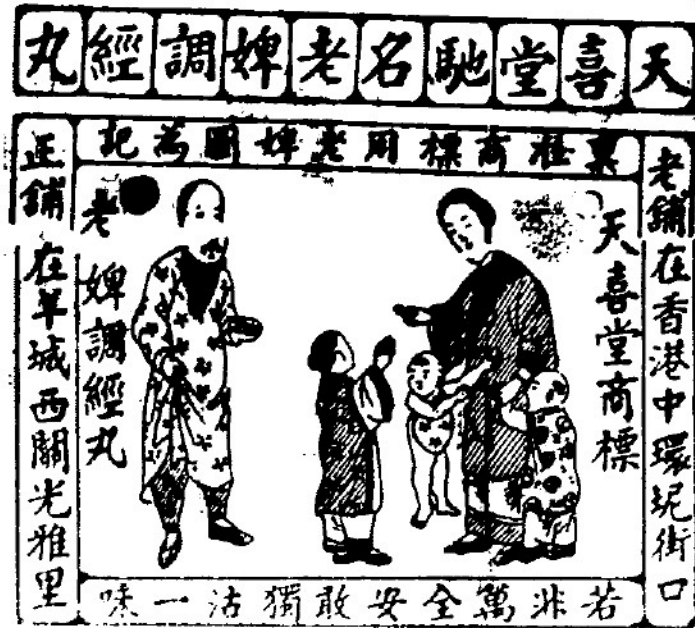 天喜堂馳名老婢調經丸
稟桩商標用老婢圖為記
老鋪在香港中環坭街口
天喜堂商標
老婢調經丸
正鋪在羊城西關光雅里
若非萬全安敢獨沽一味